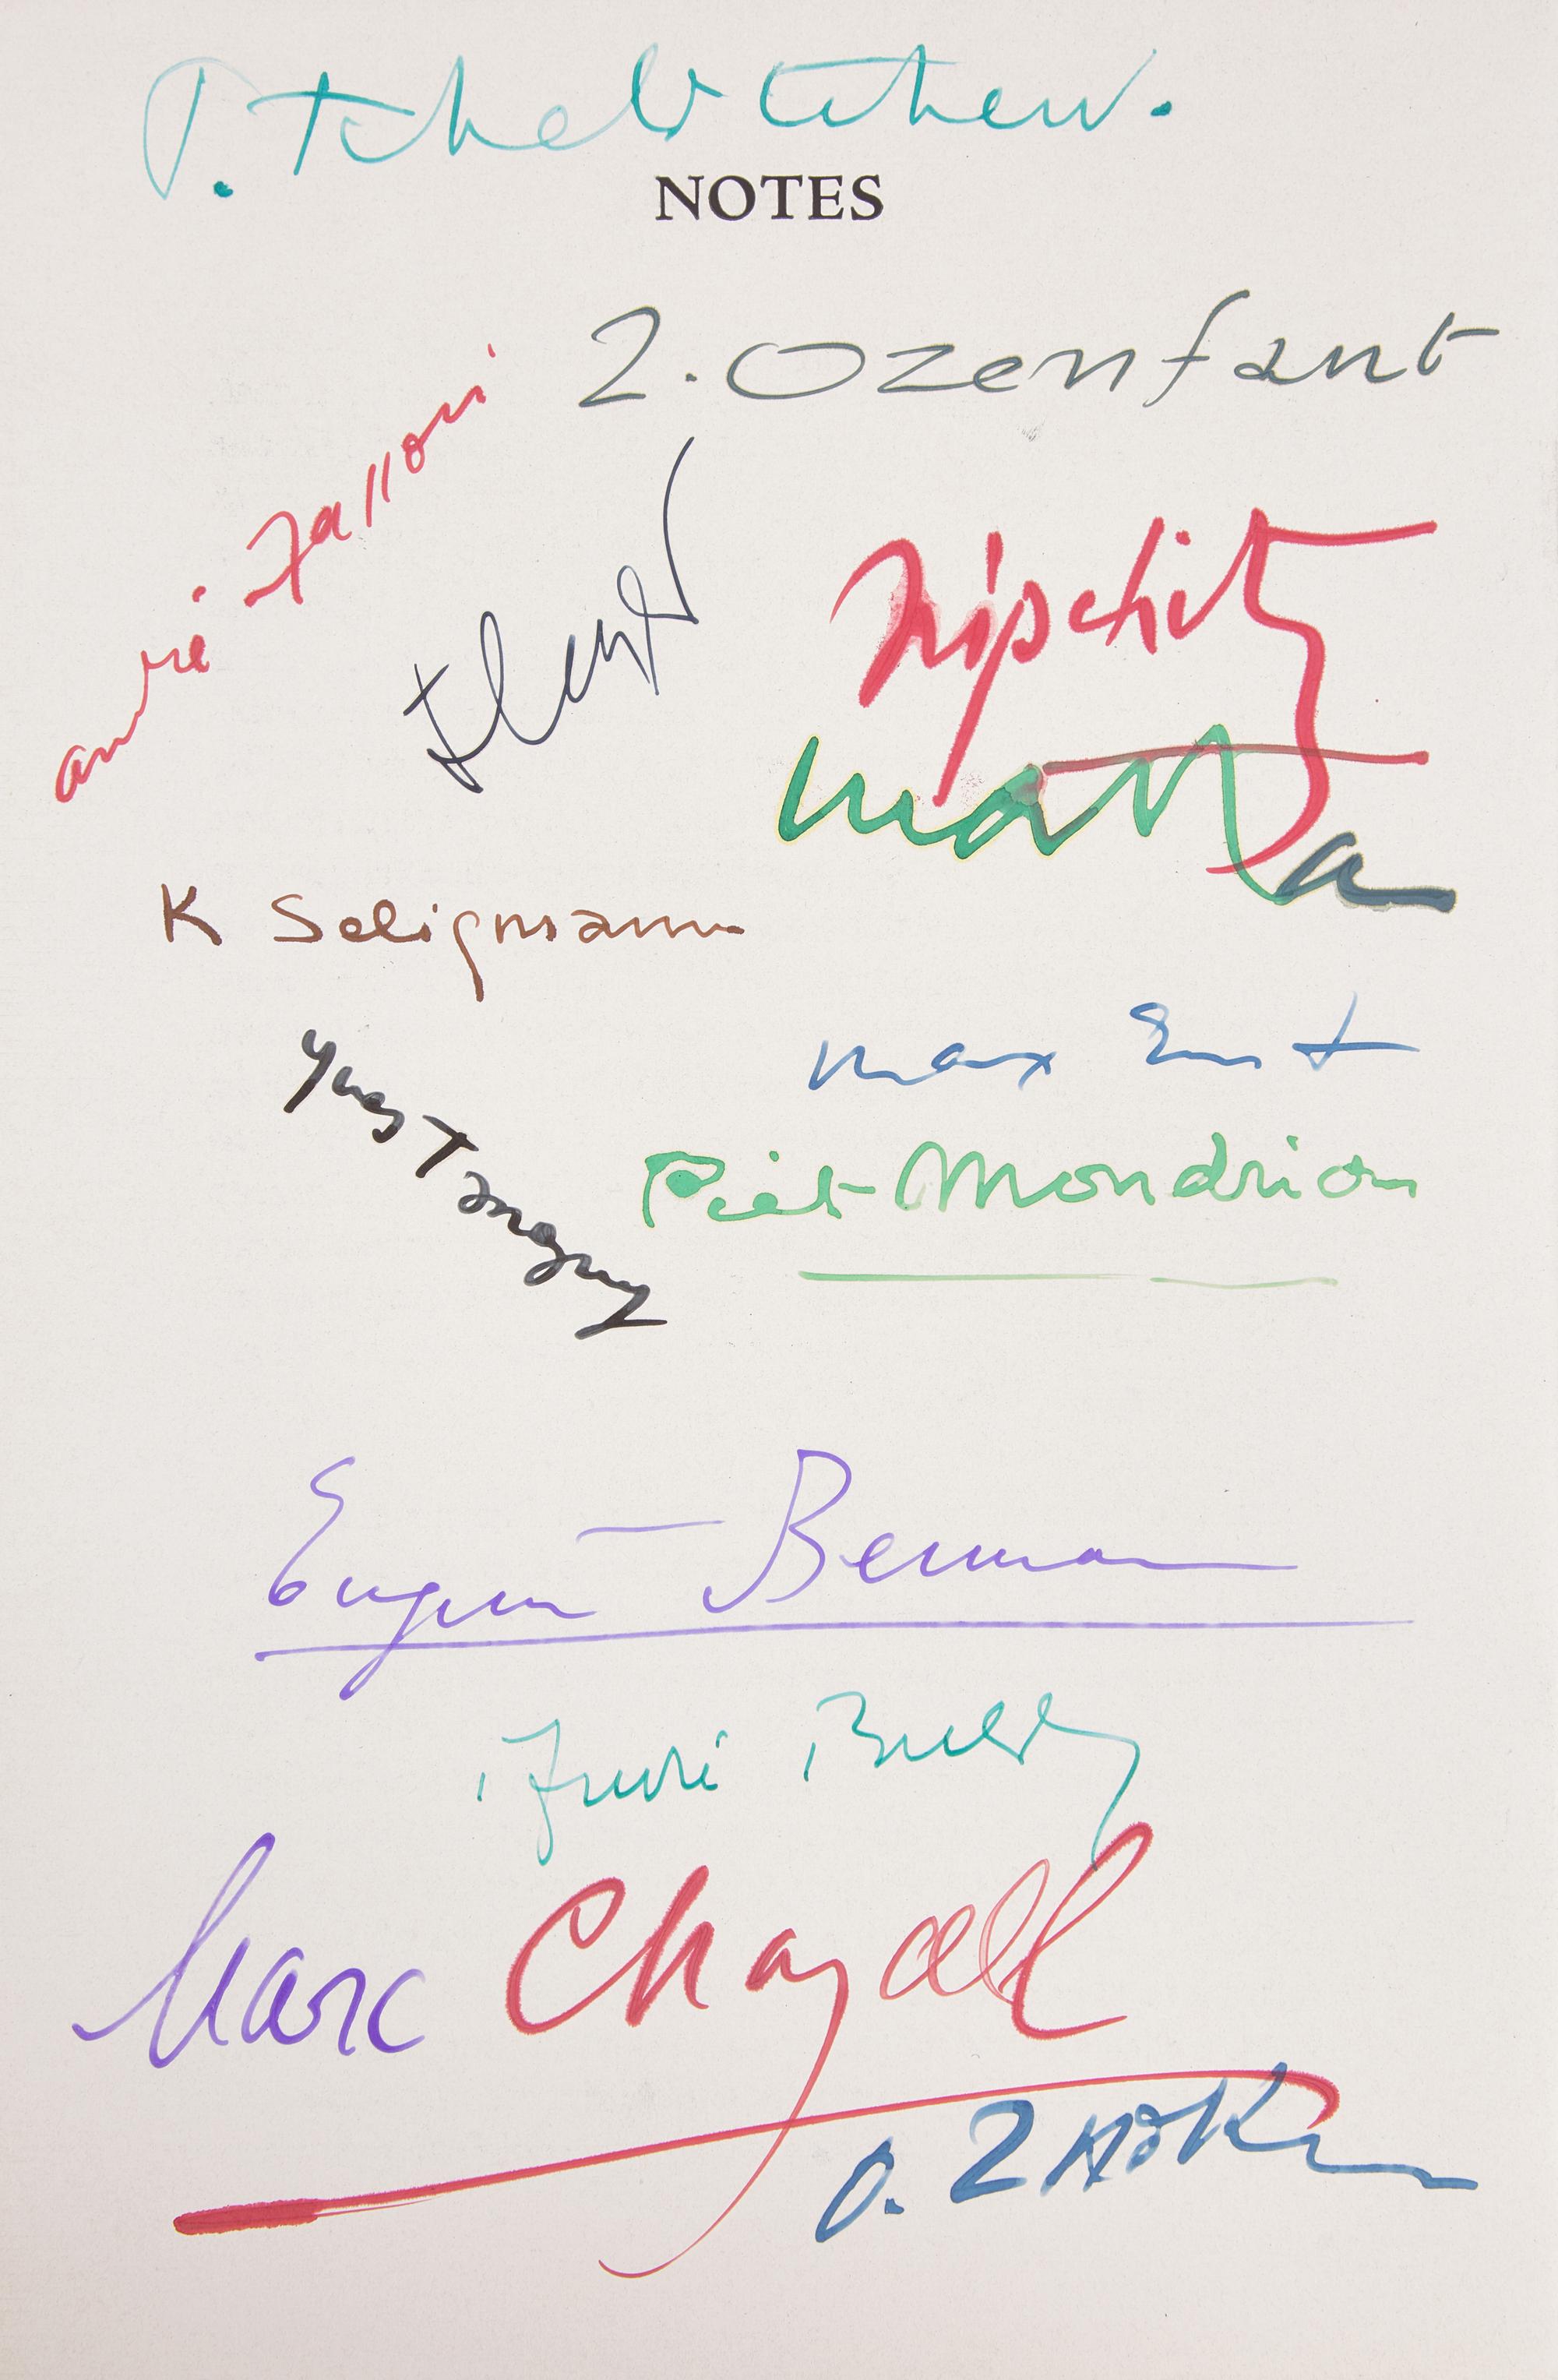 P. Tchelitchew.
NOTES
2. Ozenfant
andré Masson
FLeger
Lipchitz
matta
K Seligmann
Yves Tanguy
max Ernst
Piet Mondrian
Eugene Berman
André Breton
Marc Chagall
O. Zadkine